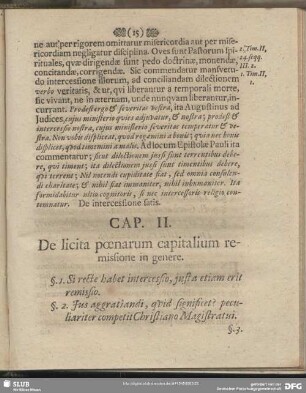 (15)
ne aut per rigorem omittatur misericordia aut per mise-
ricordiam negligatur disciplina. Oves sunt Pastorum spi-
rituales, quæ dirigendæ sunt pedo doctrinæ, monendæ,
concitandæ, corrigendæ. Sic commendetur mansvetu-
do intercessione illorum, ad conciliandam dilectionem
verbo veritatis, & ut, qvi liberantur a temporali morte,
sic vivant, ne in æternam, unde nunqvam liberantur, in-
currant. Prodest ergo & severitas vestra, ita Augustinus ad
Judices, cujus ministerio qvies adjuvatur, & nostra; prodest &
intercessio nostra, cujus ministerio severitas temperatur & ve-
stra. Non vobis displiceat, qvod rogamini a bonis; qvia nec bonis
displicet, qvod timemini a malis. Ad locum Epistolæ Pauli ita
commentatur; sint
qvi timent; ita
qvi terrent; Nil nocendi cupiditate fiat, sed omnia consulen-
di charitate; & nihil fiat immaniter, nihil inhumaniter. Ita
formidabitur ultio cognitoris, ut nec intercessoris religio con-
temnatur. De intercessione satis.
2. Tim. II,
24. seqq.
III. 2.
1. Tim. II,
1.
CAP. II.
De licita pœnarum capitalium re-
missione in genere.
§. 1. Si recte habet intercessio, justa etiam erit
remissio.
§. 2. Jus aggratiandi, qvid significet? pecu-
liariter competit Christiano Magistratui.
§. 3.
SLUB
Wir führen Wissen.
DFG